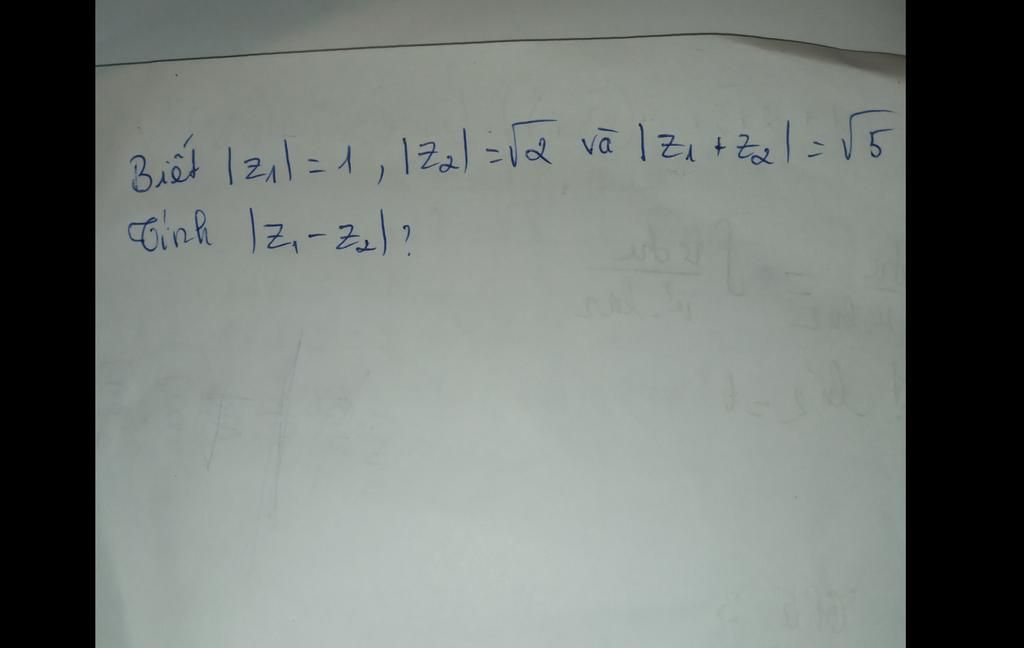 Biết |z₁| = 1 , |z₂| = √2 và |z₁ + z₂| = √5
Tính |z₁ - z₂| ?